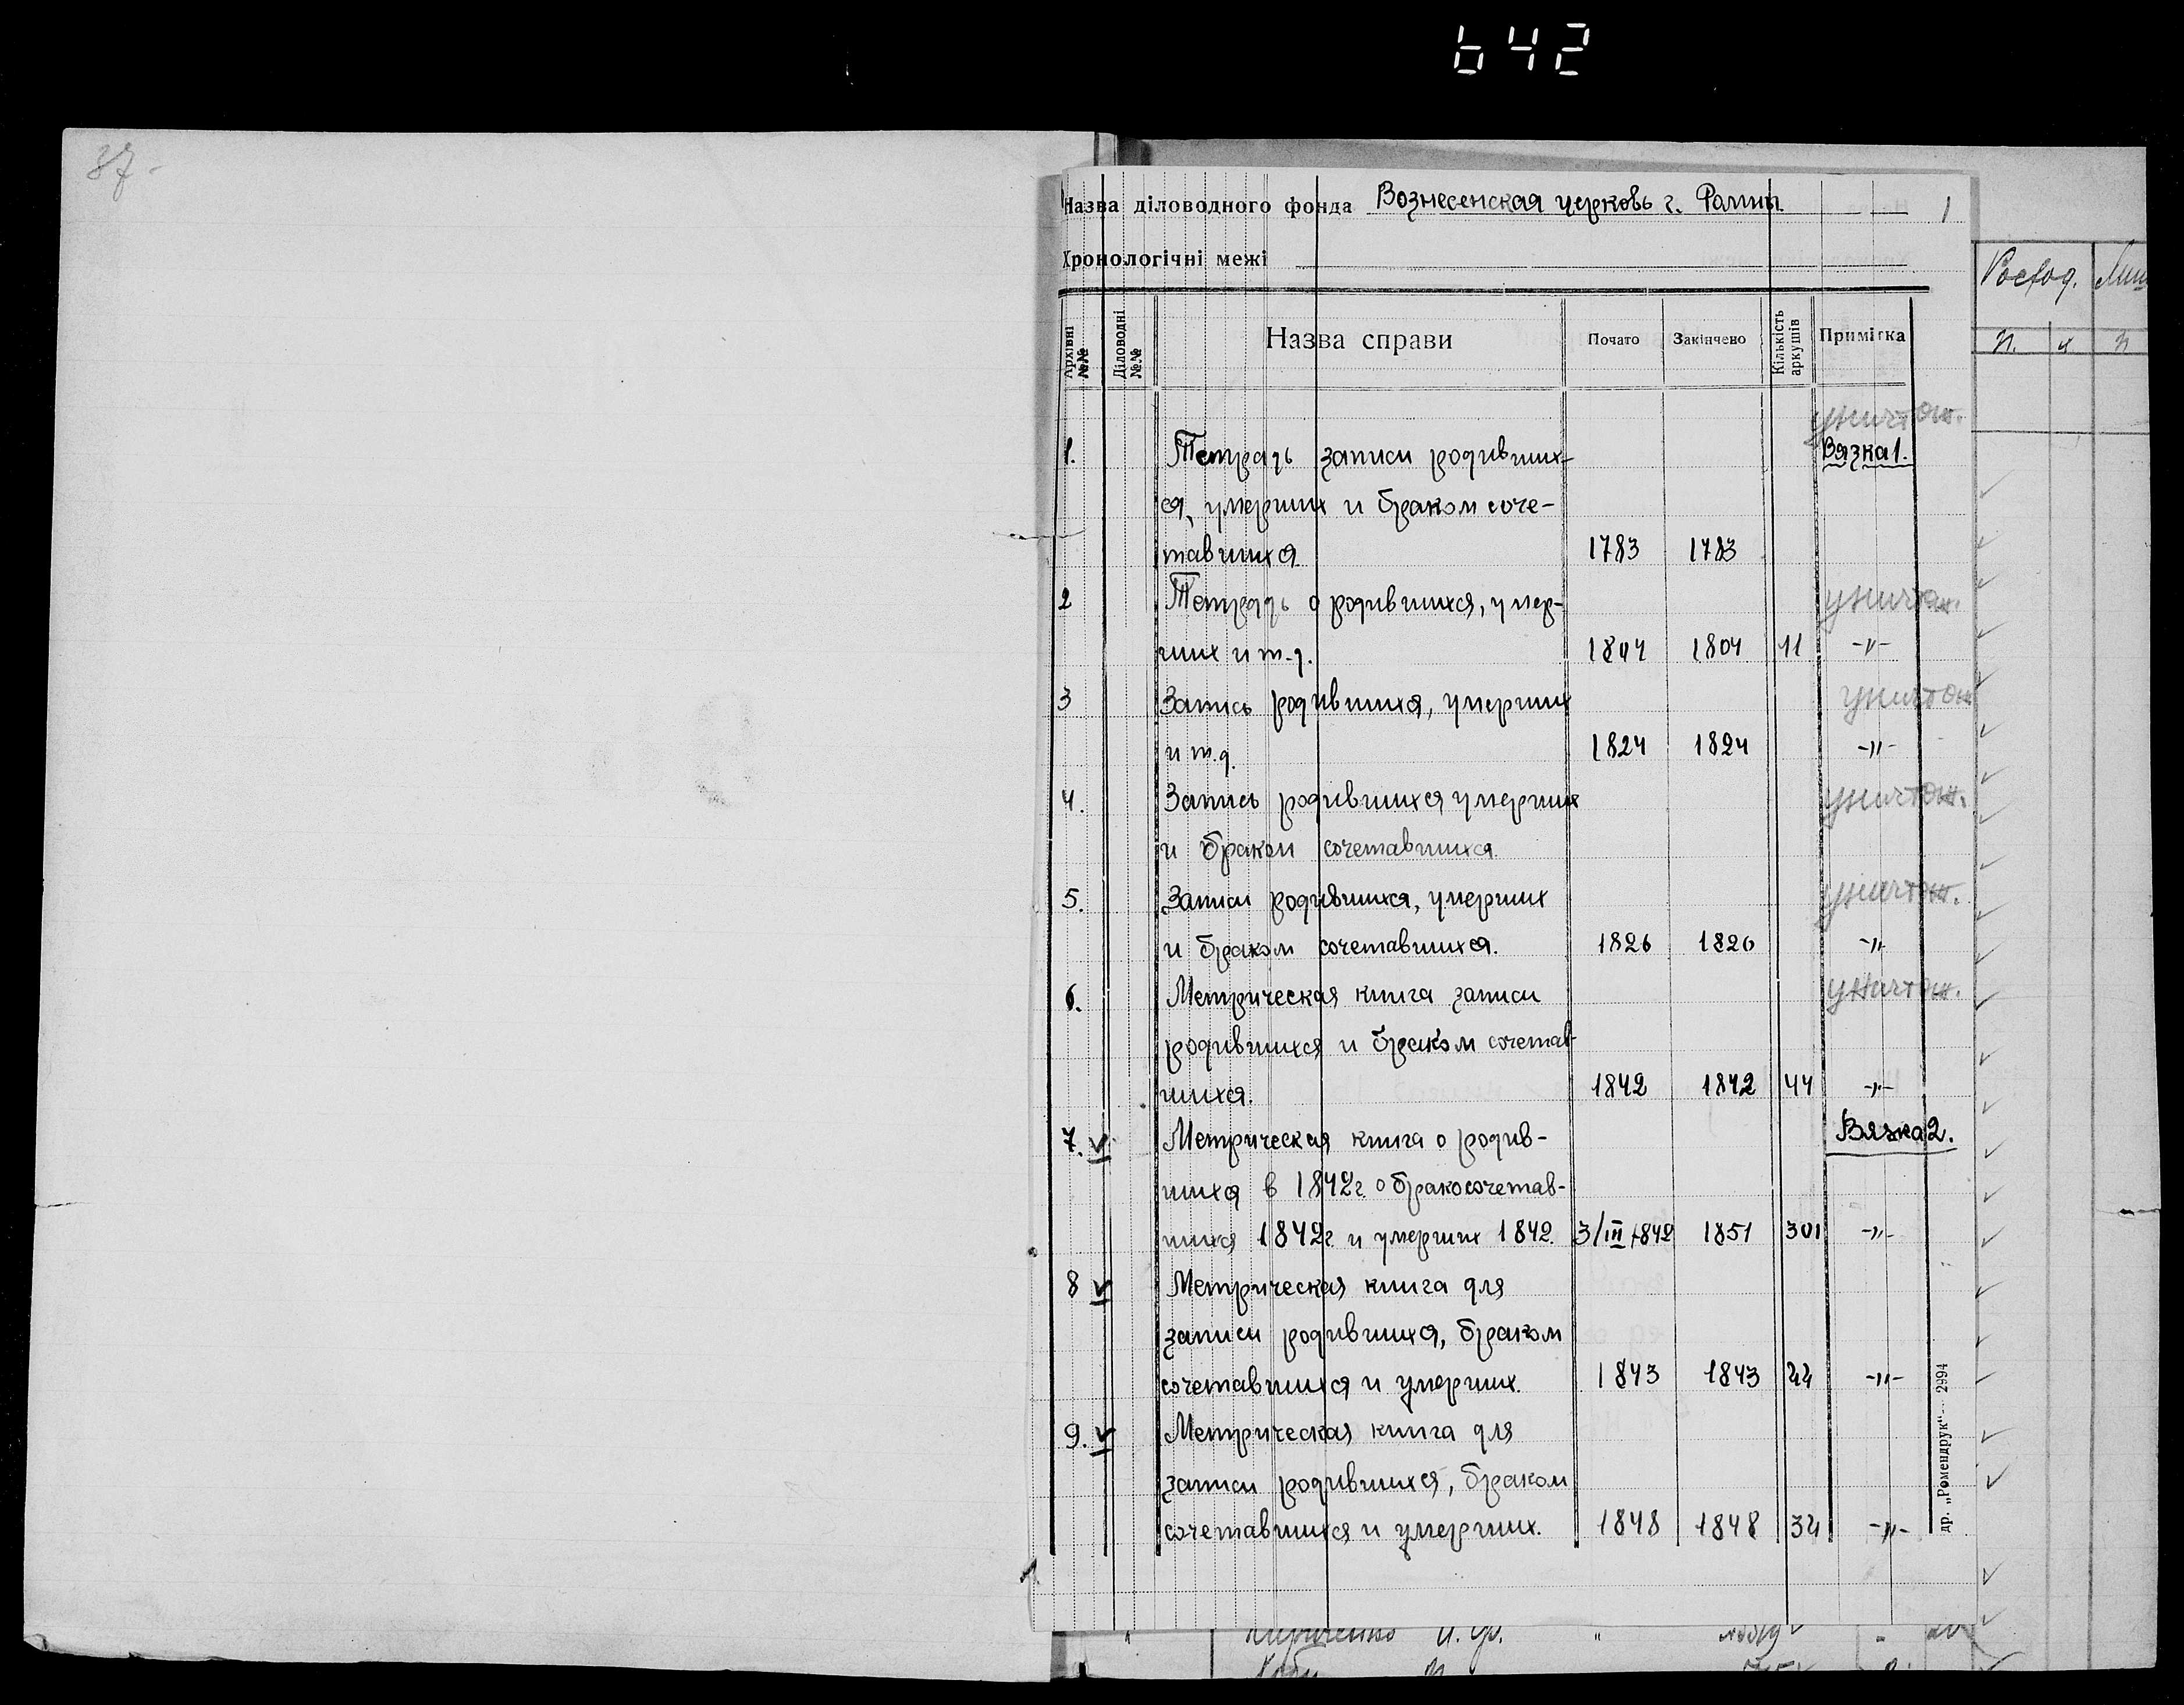 642
37-
Назва діловодного фонда Вознесенская церковь г. Ромны. 1
Хронологічні межі
Архівні №№ Діловодні №№ Назва справи Почато Закінчено Кількість аркушів Примітка
Росход.
п. к п
уничтож.
1. Тетрадь записи родивших- Вязка 1.
ся, умерших и браком соче-
тавшихся 1783 1783
2 Тетрадь о родившихся, умер- уничтож.
ших и т.д. 1804 1804 11 -"-
3 Запись родившихся, умерших уничтож
и т.д. 1824 1824 -"-
4. Запись родившихся умерших уничтож.
и браком сочетавшихся.
5. Записи родившихся, умерших уничтож.
и браком сочетавшихся. 1826 1826 -"-
6. Метрическая книга записи уничтож.
родившихся и браком сочетав-
шихся. 1842 1842 44 -"-
7. v Метрическая книга о родив- Вязка 2.
шихся в 1842г. о бракосочетав-
шихся 1842г. и умерших 1842. 3/III 1842 1851 301 -"-
8 v Метрическая книга для
записи родившихся, браком
сочетавшихся и умерших. 1843 1843 22 -"-
9. v Метрическая книга для
записи родившихся, браком
сочетавшихся и умерших. 1848 1848 34 -"-
др. „Ромендрук“— 2994